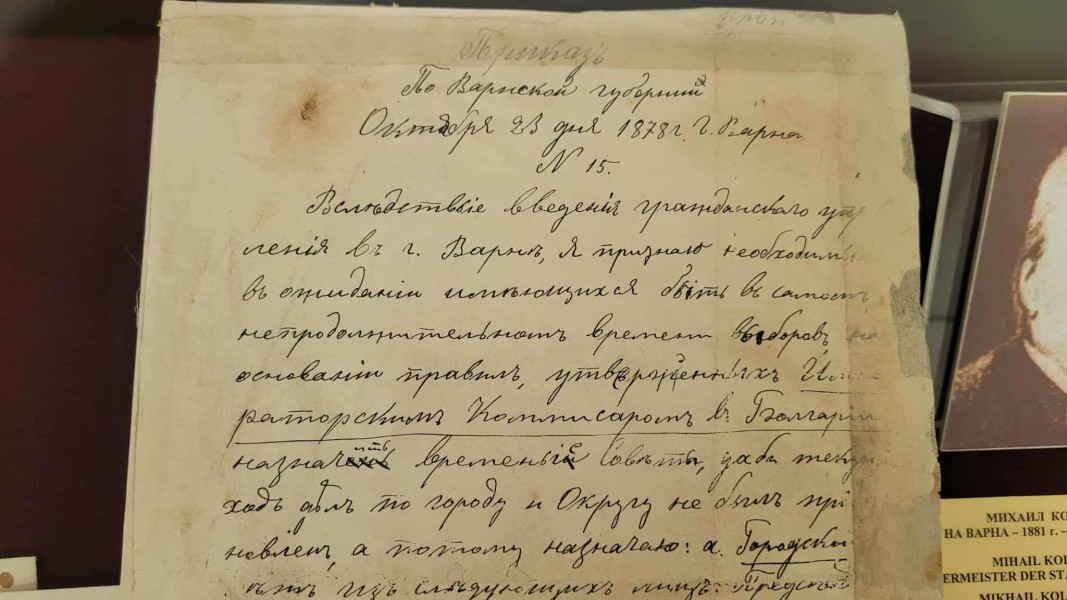 Приказъ
По Варнской губерніи
Октября 23 дня 1878 г. Г. Варна
N 15.
Вслѣдствіе введенія гражданскаго упр
ленія въ г. Варнѣ, я признаю необходим
въ ожиданіи имѣющихся быть въ самомъ
непродолжительномъ времени выборовъ, на
основаніи правилъ, утвержденныхъ Импе
раторскимъ Коммисаромъ въ Болгаріи
назначить временые Совѣты, дабы теку
ходъ дѣлъ по городу и Округу не былъ прі
новленъ, а потому назначаю: а. Городски
вѣтъ изъ слѣдующихъ лицъ: Предсѣд
МИХАИЛ КО
НА ВАРНА – 1881 г. –
MIHAIL KOL
ERMEISTER DER STA
MIKHAIL KOL